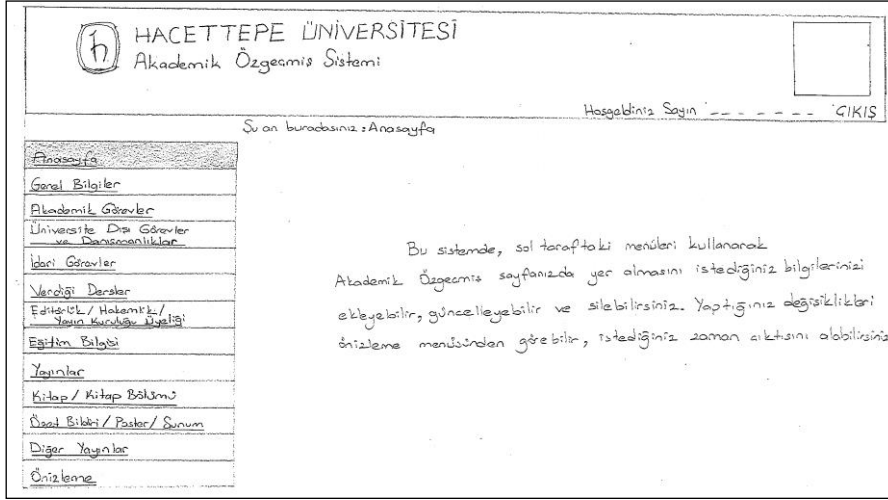 h
HACETTEPE ÜNİVERSİTESİ
Akademik Özgecmis Sistemi
Hosgeldiniz Sayın - - - - - - - ÇIKIŞ
Su an buradasınız : Anasayfa
Anasayfa
Genel Bilgiler
Akademik Görevler
Üniversite Dısı Görevler
ve Danısmanlıklar
İdari Görevler
Verdiği Dersler
Editörlük / Hakemlik /
Yayın Kuruluğu Üyeliği
Eğitim Bilgisi
Yayınlar
Kitap / Kitap Bölümü
Özet Bildiri / Poster / Sunum
Diğer Yayınlar
Önizleme
Bu sistemde, sol taraftaki menüleri kullanarak
Akademik Özgecmis sayfanızda yer almasını istediğiniz bilgilerinizi
ekleyebilir, güncelleyebilir ve silebilirsiniz. Yaptığınız değisiklikleri
önizleme menüsünden görebilir, istediğiniz zaman cıktısını alabilirsiniz